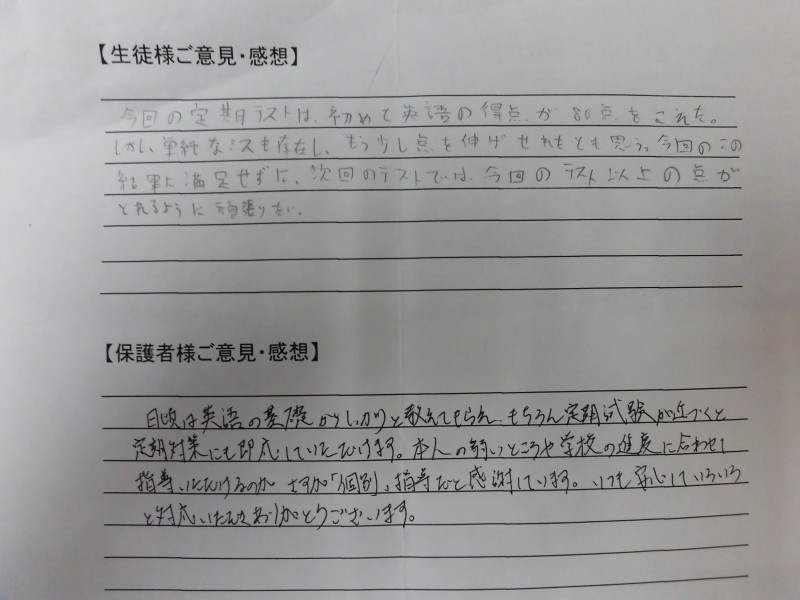 【生徒様ご意見・感想】
今回の定期テストは、初めて英語の得点が80点をこえた。
しかし、単純なミスも存在し、もう少し点を伸ばせれたとも思う。今回のこの
結果に満足せずに、次回のテストでは、今回のテスト以上の点が
とれるように頑張りたい。
【保護者様ご意見・感想】
日頃は英語の基礎がしっかりと教えてもらえ、もちろん定期試験が近づくと
定期対策にも即応していただけます。本人の弱いところや学校の進度に合わせて
指導いただけるのが さすが「個別」指導だと感謝しています。いつも安心していろいろ
と対応いただきありがとうございます。